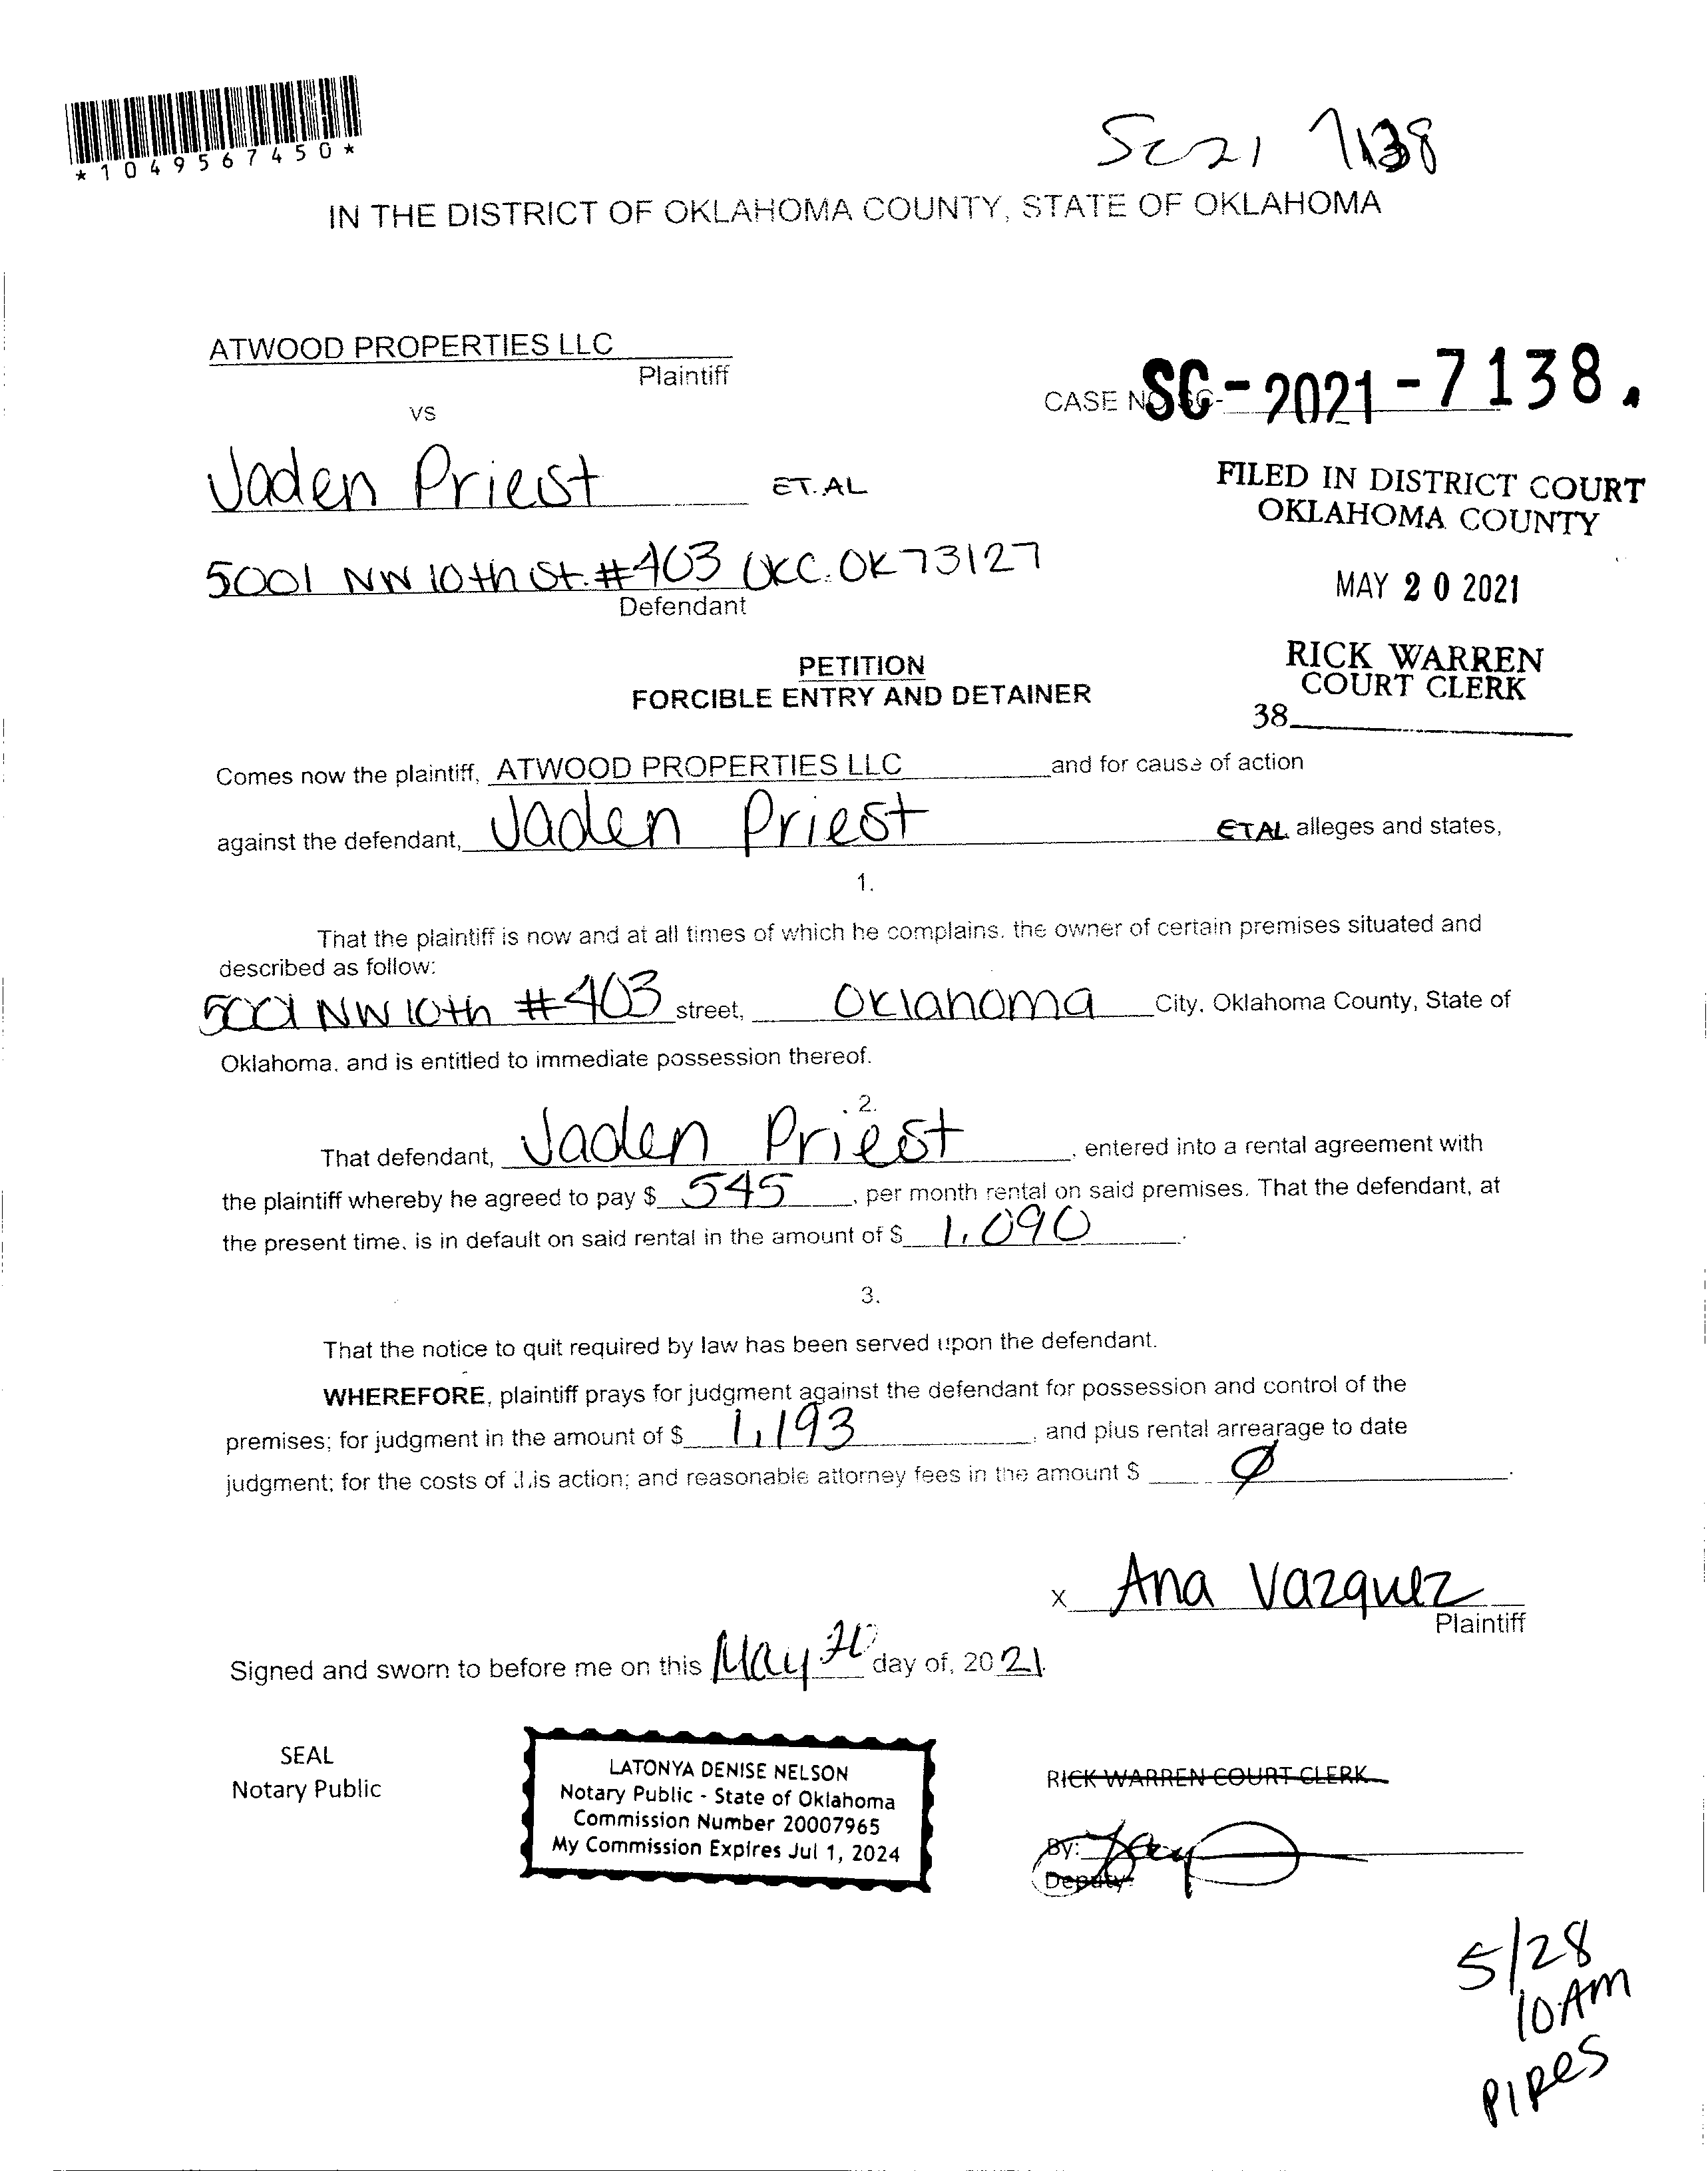 *1049567450*
SC21 7138
IN THE DISTRICT OF OKLAHOMA COUNTY, STATE OF OKLAHOMA
ATWOOD PROPERTIES LLC
Plaintiff
vs
CASE NO SC-
SC-2021-7138.
Jaden Priest ET.AL
5001 NW 10th St. #403 OKC. OK 73127
Defendant
FILED IN DISTRICT COURT
OKLAHOMA COUNTY
MAY 20 2021
RICK WARREN
COURT CLERK
38
PETITION
FORCIBLE ENTRY AND DETAINER
Comes now the plaintiff, ATWOOD PROPERTIES LLC and for cause of action
against the defendant, Jaden Priest ETAL alleges and states,
1.
That the plaintiff is now and at all times of which he complains, the owner of certain premises situated and
described as follow:
5001 NW 10th #403 street, Oklahoma City, Oklahoma County, State of
Oklahoma, and is entitled to immediate possession thereof.
2.
That defendant, Jaden Priest, entered into a rental agreement with
the plaintiff whereby he agreed to pay $ 545, per month rental on said premises. That the defendant, at
the present time, is in default on said rental in the amount of $ 1,090.
3.
That the notice to quit required by law has been served upon the defendant.
WHEREFORE, plaintiff prays for judgment against the defendant for possession and control of the
premises; for judgment in the amount of $ 1,193, and plus rental arrearage to date
judgment; for the costs of this action; and reasonable attorney fees in the amount $ Ø.
x Ana Vazquez
Plaintiff
Signed and sworn to before me on this May 20 day of, 20 21.
SEAL
Notary Public
LATONYA DENISE NELSON
Notary Public - State of Oklahoma
Commission Number 20007965
My Commission Expires Jul 1, 2024
RICK WARREN COURT CLERK
By:
Deputy
5/28
10AM
PIPES